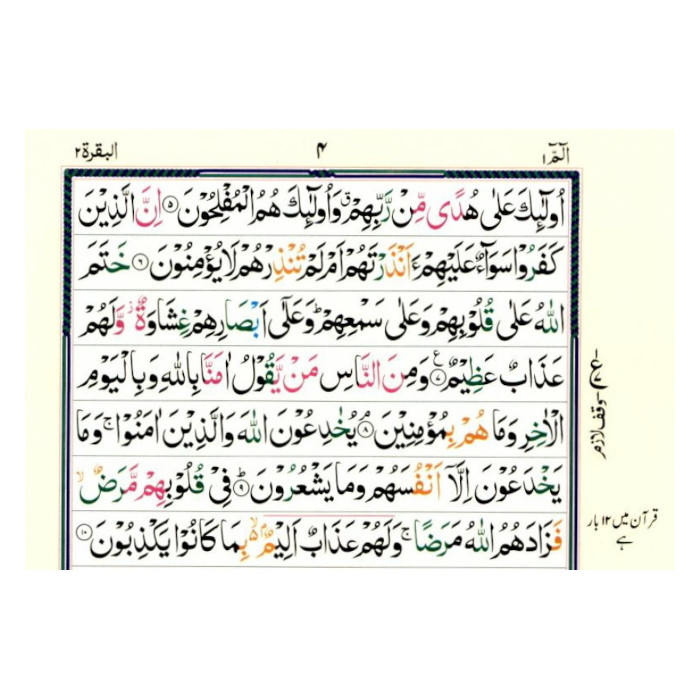 الٓمّٓ ١
۴
البقرة ٢
اُولٰٓئِكَ عَلٰى هُدًى مِّنْ رَّبِّهِمْ ۗ وَاُولٰٓئِكَ هُمُ الْمُفْلِحُوْنَ ۝۵ اِنَّ الَّذِيْنَ
كَفَرُوْا سَوَآءٌ عَلَيْهِمْ ءَاَنْذَرْتَهُمْ اَمْ لَمْ تُنْذِرْهُمْ لَا يُؤْمِنُوْنَ ۝۶ خَتَمَ
اللّٰهُ عَلٰى قُلُوْبِهِمْ وَعَلٰى سَمْعِهِمْ ؕ وَعَلٰٓى اَبْصَارِهِمْ غِشَاوَةٌ ؗ وَّلَهُمْ
عَذَابٌ عَظِيْمٌ ۝۷ ع وَمِنَ النَّاسِ مَنْ يَّقُوْلُ اٰمَنَّا بِاللّٰهِ وَبِالْيَوْمِ
الْاٰخِرِ وَمَا هُمْ بِمُؤْمِنِيْنَ ۘ ۝۸ يُخٰدِعُوْنَ اللّٰهَ وَالَّذِيْنَ اٰمَنُوْا ۚ وَمَا
يَخْدَعُوْنَ اِلَّاۤ اَنْفُسَهُمْ وَمَا يَشْعُرُوْنَ ؕ ۝۹ فِيْ قُلُوْبِهِمْ مَّرَضٌ ۙ
فَزَادَهُمُ اللّٰهُ مَرَضًا ۚ وَلَهُمْ عَذَابٌ اَلِيْمٌۢ ۙ۬ بِمَا كَانُوْا يَكْذِبُوْنَ ۝۱۰
ع
وقف لازم
قرآن میں ۱۲ بار
ہے